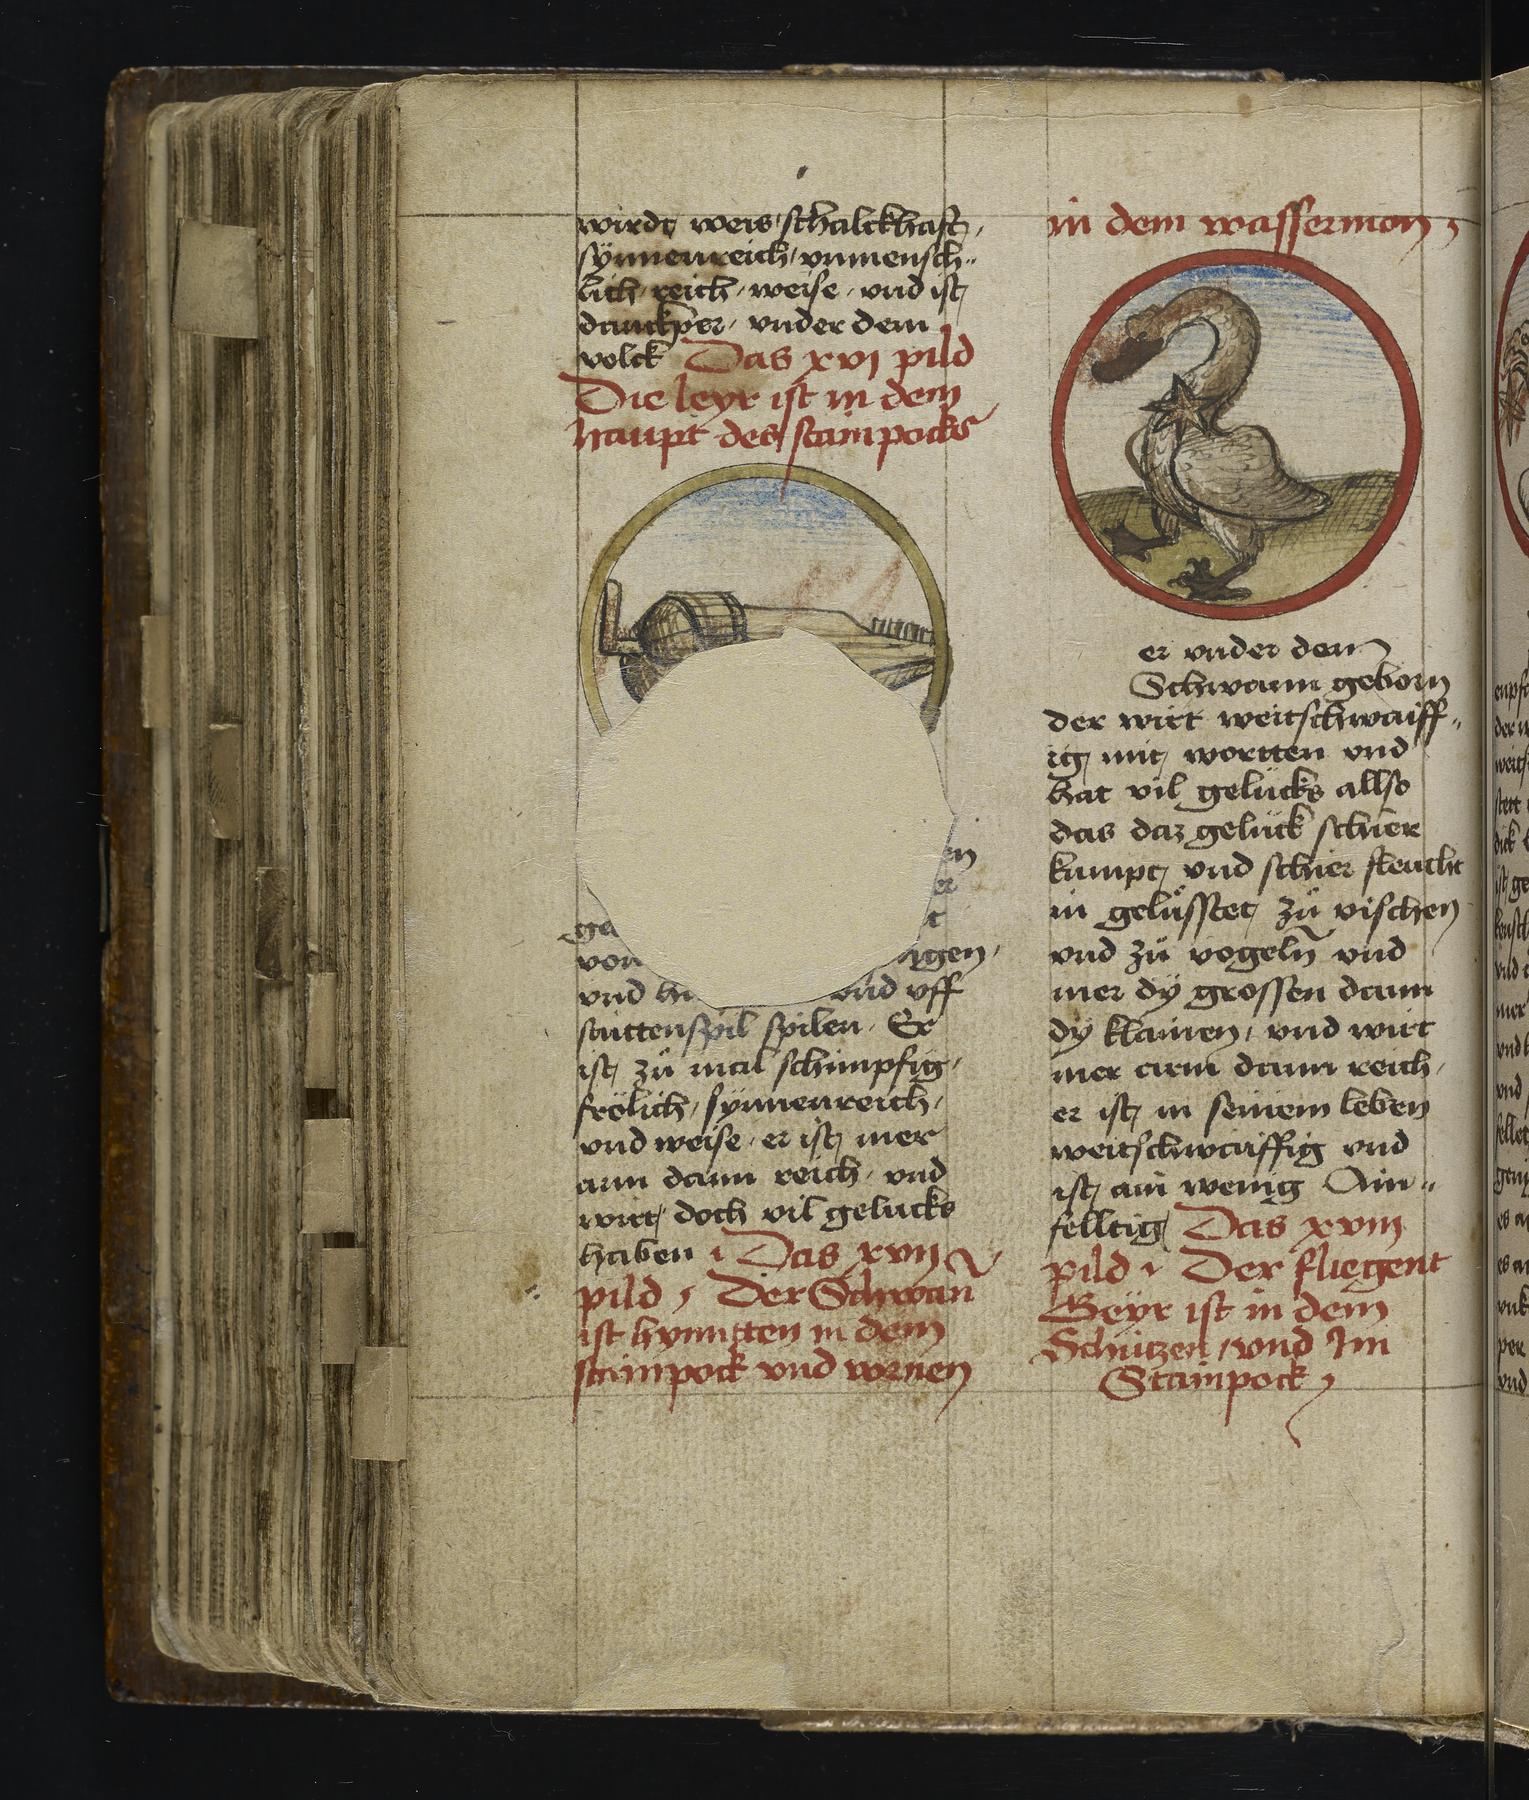 wirdt weis schalckhaft,
synnenreich, vnmensch„
lich, reich, weise, vnd ist
danckper, vnder dem
volck Das xvj pild
Die leyr ist in dem
haupt des stainpocks
en
er
ge t
von igen,
vnd vnd vff
saittenspil spilen, Er
ist zů mal schimpfig,
frölich, synnenreich,
vnd weise, er ist mer
arm dann reich, vnd
wirt doch vil gelucks
haben Das xvij
pild, Der Schwan
ist hynntten in dem
stainpock vnd vornen
in dem wassermon,
er vnder dem
Schwann geborn
der wirt weitschwaiff„
ig mit wortten vnd
hat vil gelücks allso
das daz gelück schier
kumpt vnd schier fleucht
in gelüsstet zů vischen
vnd zů vogeln vnd
mer dy grossen dann
dy klainen, vnd wirt
mer arm dann reich,
er ist in seinem leben
weitschwaiffig vnd
ist ain wenig Ain„
felltig Das xviij
pild, Der fliegent
Geyr ist in dem
Schützen, vnd Im
Stainpock,